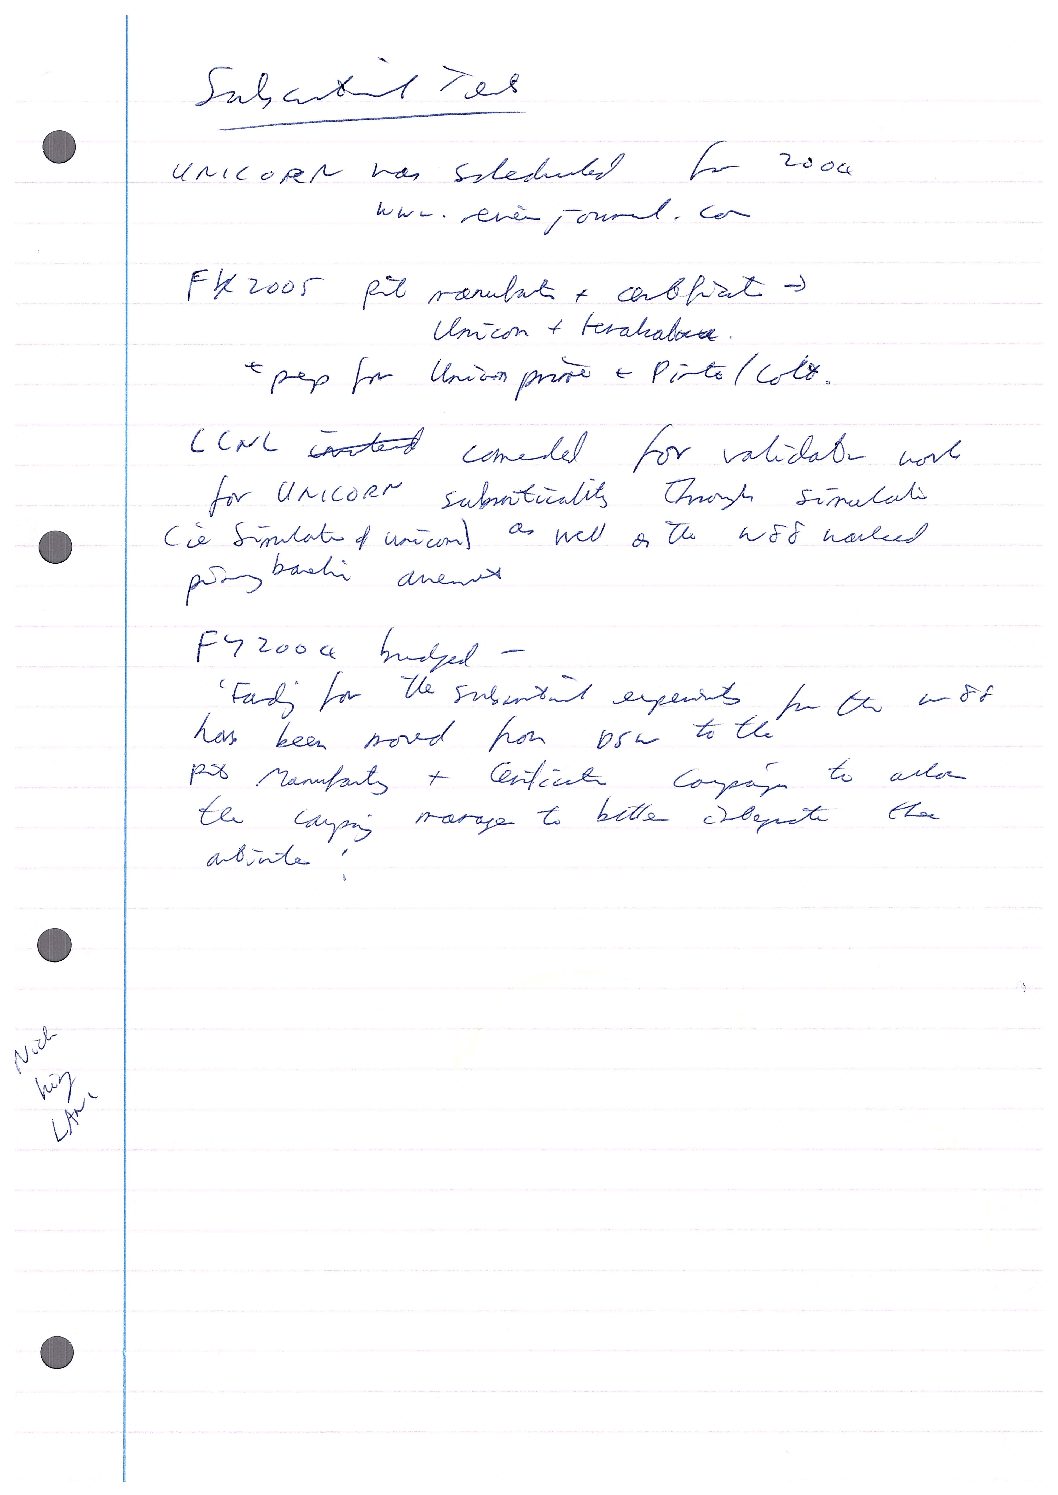 Subcritical Tests
UNICORN was scheduled for 2004
www.reviewjournal.com
FY 2005 pit manufacture + certification →
Unicorn +
+ prep for Unicorn prime + Pinto/Colt.
LLNL for validation work
for UNICORN subcriticality through simulation
(ie simulation of unicorn) as well as the W88 warhead
primary baseline assessment
FY2004 budget -
'Funding for the subcritical experiments for the W88
has been moved from DSW to the
Pit Manufacturing + Certification Campaign to allow
the campaign manager to better integrate these
activities'
Nick
King
LANL